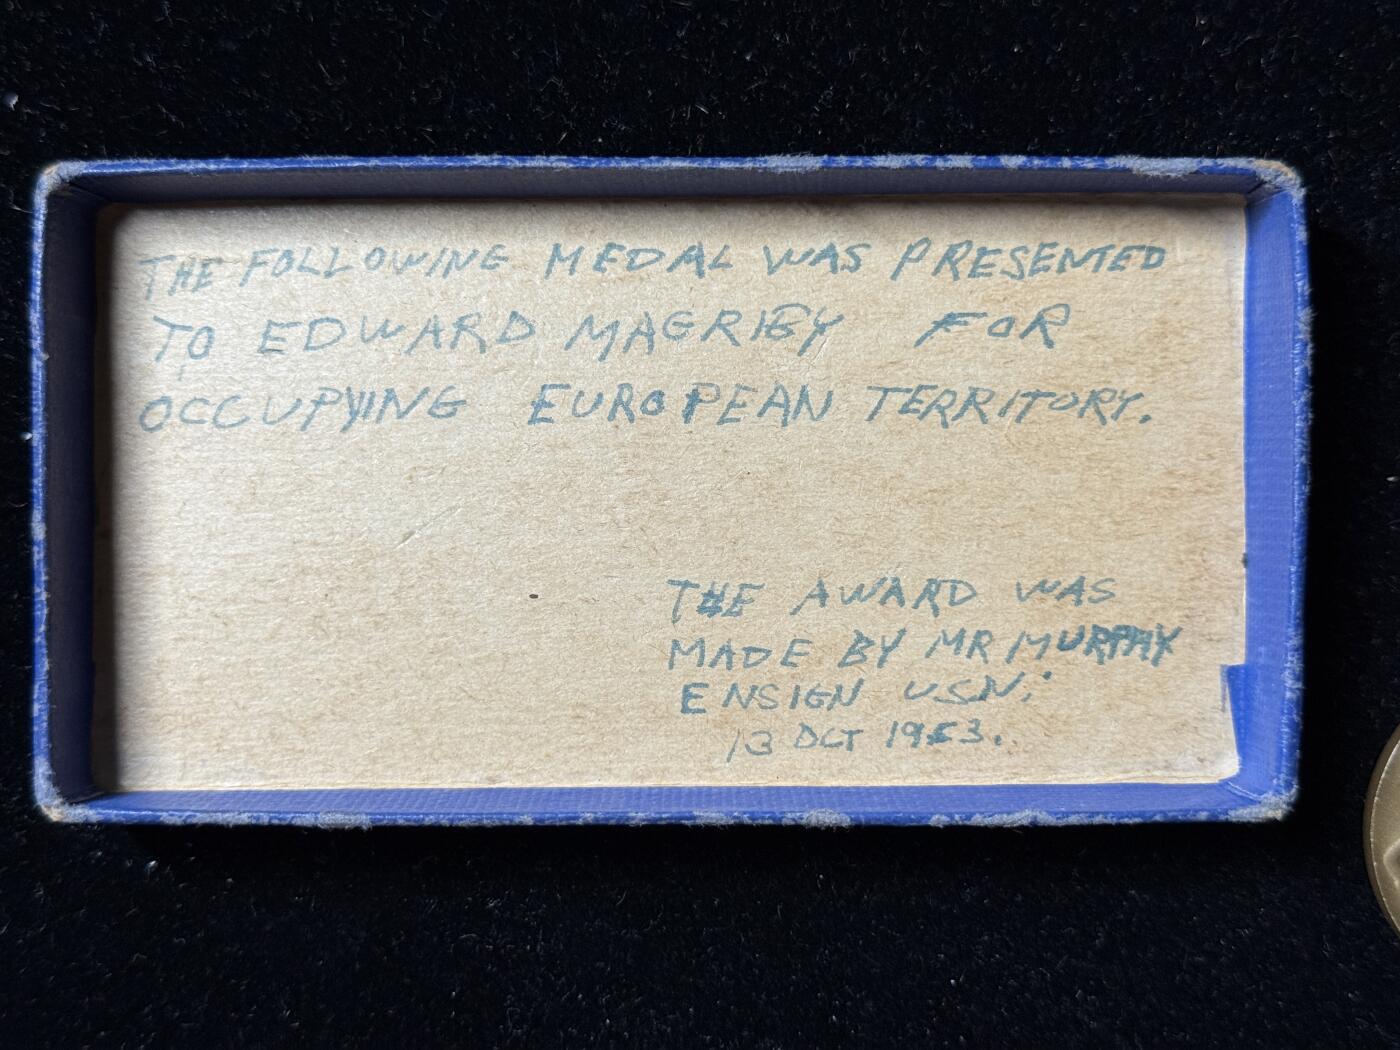 THE FOLLOWING MEDAL WAS PRESENTED
TO EDWARD MAGRIBY FOR
OCCUPYING EUROPEAN TERRITORY.
THE AWARD WAS
MADE BY MR MURPHY
ENSIGN USN;
13 OCT 1953.